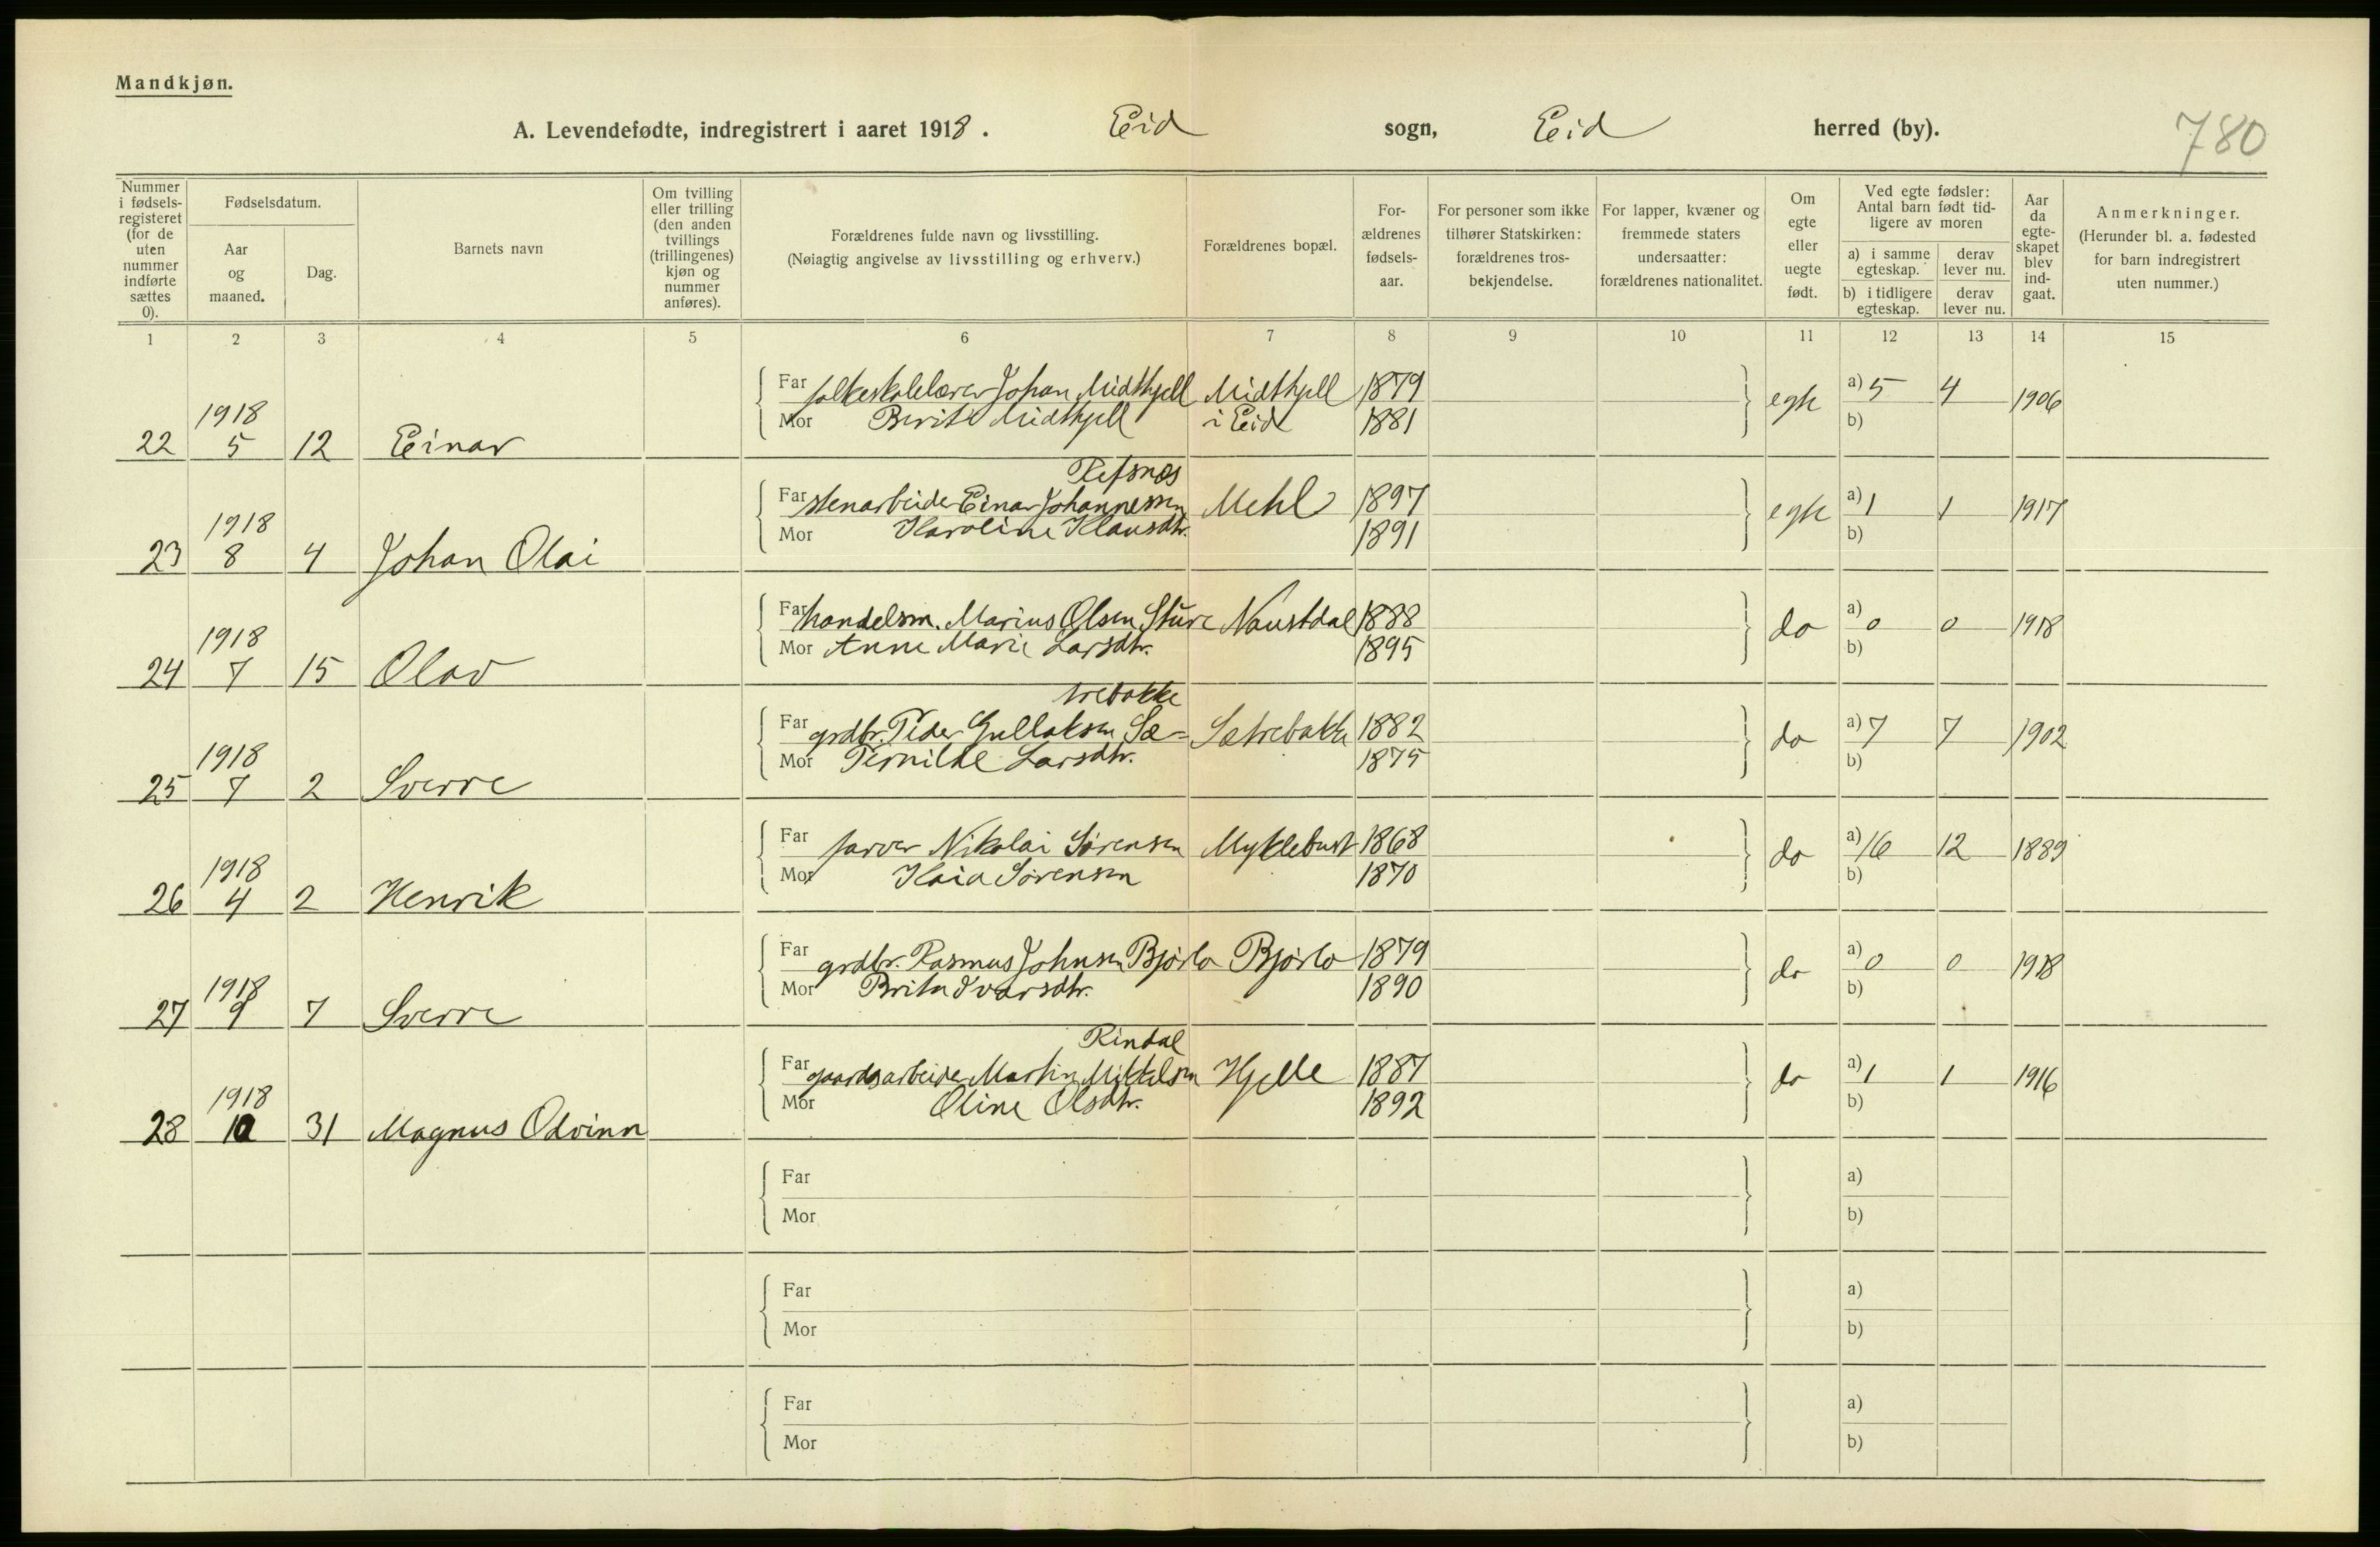 Mandkjøn.
A. Levendefødte, indregistrert i aaret 1918. Eid sogn, Eid herred (by). 780
Nummer i fødsels-registeret (for de uten nummer indførte sættes 0).
Fødselsdatum.
Aar og maaned.
Dag.
Barnets navn
Om tvilling eller trilling (den anden tvillings (trillingenes) kjøn og nummer anføres).
Forældrenes fulde navn og livsstilling.
(Nøiagtig angivelse av livsstilling og erhverv.)
Forældrenes bopæl.
For-ældrenes fødsels-aar.
For personer som ikke tilhører Statskirken: forældrenes tros-bekjendelse.
For lapper, kvæner og fremmede staters undersaatter: forældrenes nationalitet.
Om egte eller uegte født.
Ved egte fødsler: Antal barn født tid-ligere av moren
a) i samme egteskap.
derav lever nu.
b) i tidligere egteskap.
derav lever nu.
Aar da egte-skapet blev ind-gaat.
Anmerkninger.
(Herunder bl. a. fødested for barn indregistrert uten nummer.)
1 2 3 4 5 6 7 8 9 10 11 12 13 14 15
Far folkeskolelærer Johan Midthjell Midthjell 1879 egte a) 5 4 1906
Mor Berite Midthjell i Eid 1881 b)
22 1918 5 12 Einar
Refsnæs
Far stenarbeider Einar Johannessen Mehl 1897 egte a) 1 1 1917
Mor Karoline Klausdtr. 1891 b)
23 1918 8 4 Johan Olai
Far handelsm. Marius Olsen Sture Naustdal 1888 do a) 0 0 1918
Mor Anne Marie Larsdtr. 1895 b)
24 1918 7 15 Olav
trebakke
Far grdbr. Peder Gullaksen Sæ- Sætrebakk 1882 do a) 7 7 1902
Mor Pernille Larsdtr. 1875 b)
25 1918 7 2 Sverre
Far farver Nikolai Sørensen Myklebust 1868 do a) 16 12 1889
Mor Kaia Sørensen 1870 b)
26 1918 4 2 Henrik
Far grdbr. Rasmus Johnsen Bjørlo Bjørlo 1879 do a) 0 0 1918
Mor Brita Ivarsdtr. 1890 b)
27 1918 9 7 Sverre
Rindal
Far gaardsarbeider Martin Mikkelsen Hjelle 1887 do a) 1 1 1916
Mor Oline Olsdtr. 1892 b)
28 1918 10 31 Magnus Odvinn
Far a)
Mor b)
Far a)
Mor b)
Far a)
Mor b)